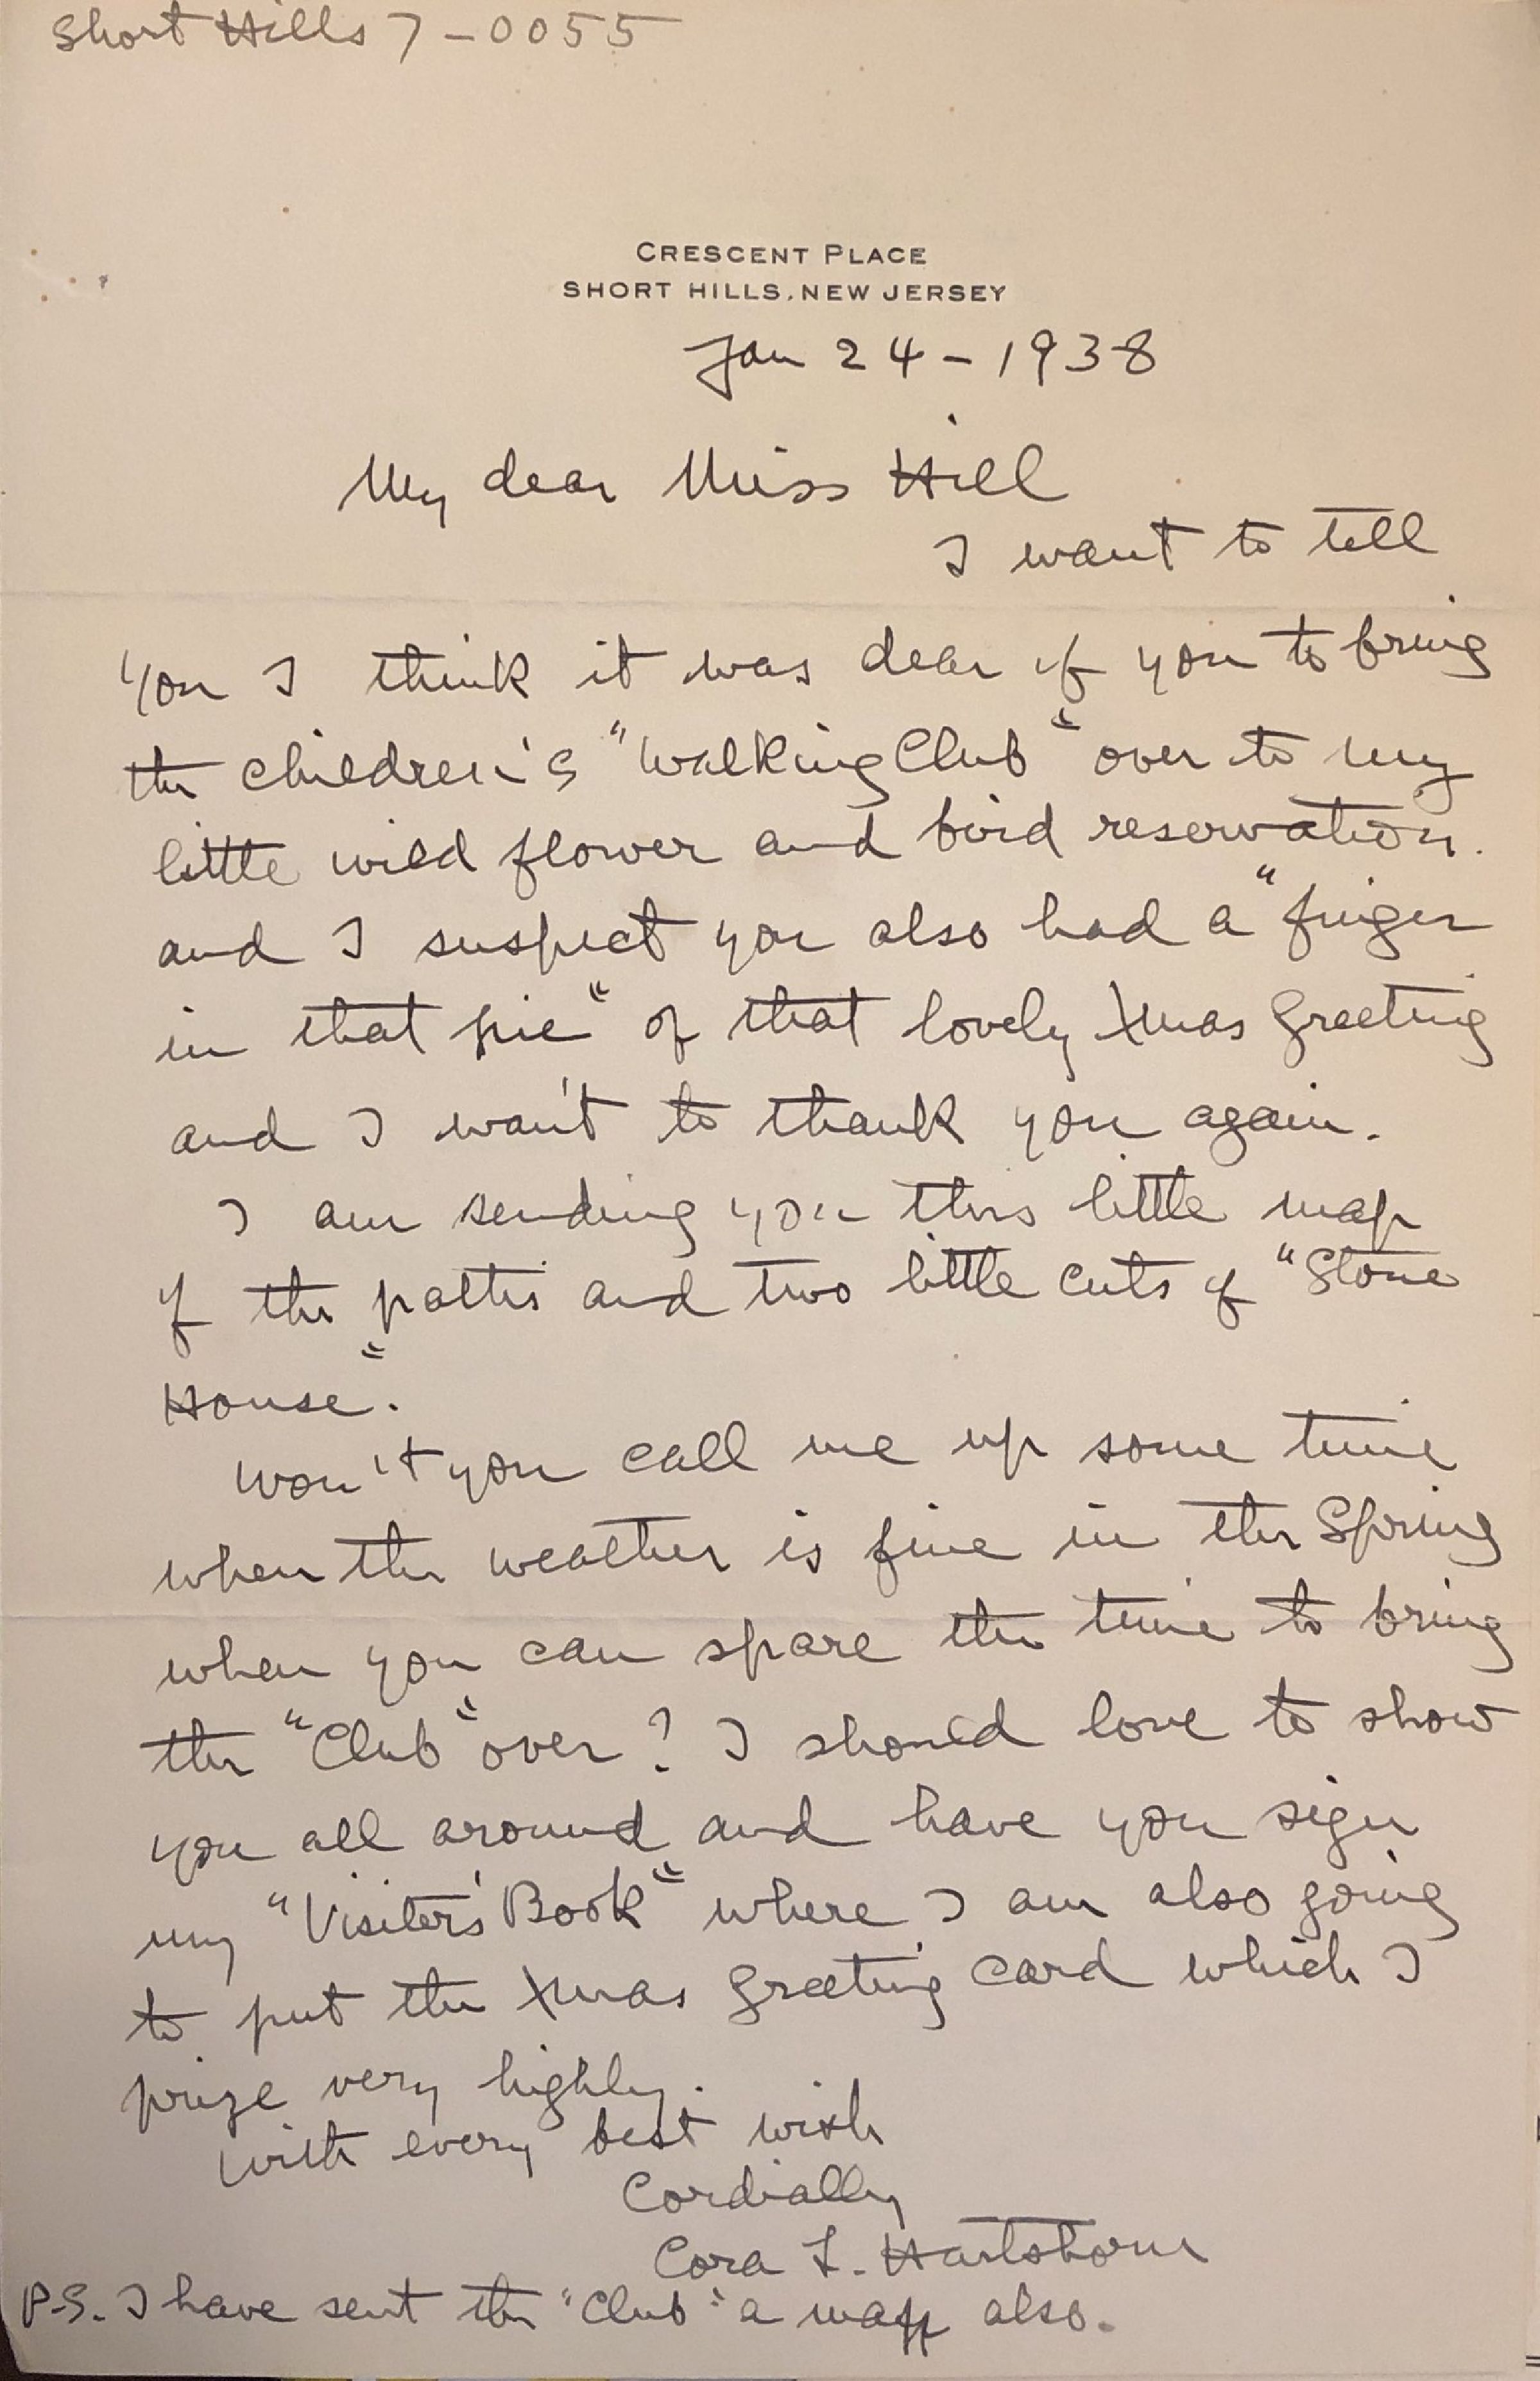 Short Hills 7-0055
CRESCENT PLACE
SHORT HILLS, NEW JERSEY
Jan 24 - 1938
My dear Miss Hill
I want to tell
you I think it was dear of you to bring
the children's "Walking Club" over to my
little wild flower and bird reservation.
and I suspect you also had a "finger
in that pie" of that lovely Xmas Greeting
and I wan't to thank you again.
I am sending you this little map
of the paths and two little cuts of "Stone
House".
Won't you call me up some time
when the weather is fine in the Spring
when you can spare the time to bring
the "Club" over? I should love to show
you all around and have you sign
my "Visiter's Book" where I am also going
to put the Xmas Greeting card which I
prize very highly.
With every best wish
Cordially
Cora L. Hartshorn
P.S. I have sent the "Club" a map also.